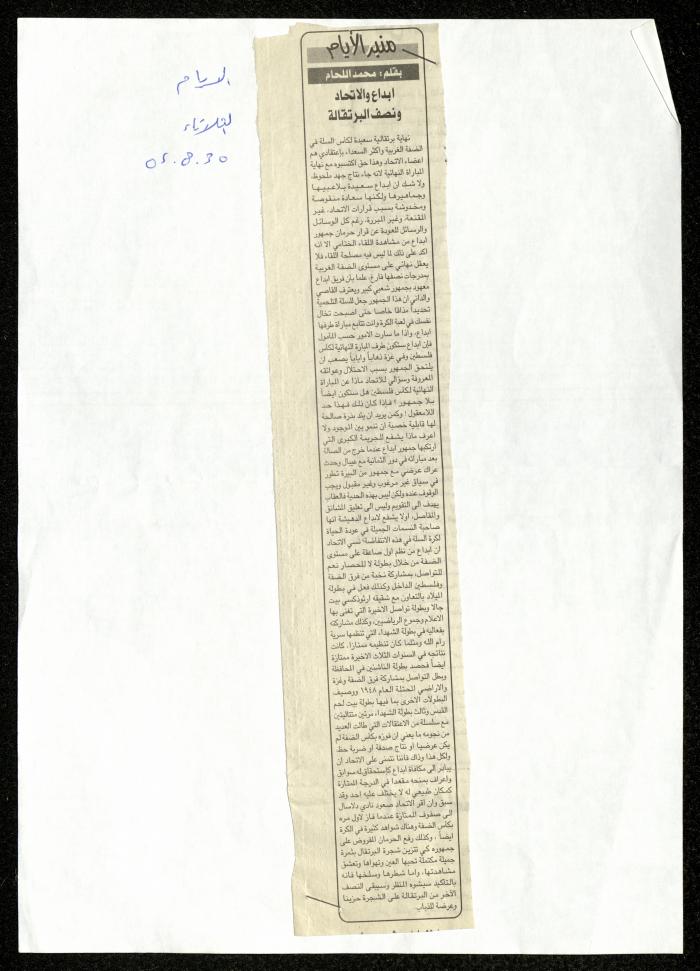 الايام
الثلاثاء
05.8.30
منبر الأيام
بقلم: محمد اللحام
ابداع والاتحاد
ونصف البرتقالة
نهاية برتقالية سعيدة لكأس السلة في
الضفة الغربية واكثر السعداء بإعتقادي هم
اعضاء الاتحاد وهذا حق اكتسبوه مع نهاية
المباراة النهائية لانه جاء نتاج جهد ملحوظ.
ولا شك ان ابداع سعيدة بلاعبيها
وجماهيرها ولكنها سعادة منقوصة
ومخدوشة بسبب قرارات الاتحاد، غير
المقنعة، وغير المبررة، رغم كل الوسائل
والرسائل للعودة عن قرار حرمان جمهور
ابداع من مشاهدة اللقاء الختامي الا انه
اكد على ذلك لما ليس فيه مصلحة اللقاء فلا
يعقل نهائي على مستوى الضفة الغربية
بمدرجات نصفها فارغ، علما بأن فريق ابداع
معهود بجمهور شعبي كبير ويعترف القاصي
والداني ان هذا الجمهور جعل للسلة التلحمية
تحديداً مذاقا خاصا حتى اصبحت تخال
نفسك في لعبة الكرة وانت تتابع مباراة طرفها
ابداع، واذا ما سارت الامور حسب المأمول
فإن ابداع ستكون طرف المباراة النهائية لكأس
فلسطين وفي غزة ذهاباً واياباً يصعب ان
يلتحق الجمهور بسبب الاحتلال وعوائقه
المعروفة وسؤالي للاتحاد ماذا عن المباراة
النهائية لكأس فلسطين هل ستكون ايضاً
بلا جمهور؟ فإذا كان ذلك فهذا حد
اللامعقول! وكمن يريد ان يئد بذرة صالحة
لها قابلية خصبة ان تنمو بين الوجود ولا
اعرف ماذا يشفع للجريمة الكبرى التي
ارتكبها جمهور ابداع عندما خرج من الصالة
بعد مباراته في دور الثمانية مع عيبال وحدث
عراك عرضي مع جمهور من البيرة تطور
في سياق غير مرغوب وغير مقبول ويجب
الوقوف عنده ولكن ليس بهذه الحدية فالعقاب
يهدف الى التقويم وليس الى تعليق المشانق
والمقاصل، أولا يشفع لابداع الدهيشة انها
صاحبة النسمات الجميلة في عودة الحياة
لكرة السلة في هذه الانتفاضة؟ نسي الاتحاد
ان ابداع من نظم اول صاعقة على مستوى
الضفة من خلال بطولة لا للحصار نعم
للتواصل، بمشاركة نخبة من فرق الضفة
وفلسطين الداخل وكذلك فعل في بطولة
الميلاد بالتعاون مع شقيقه ارثوذكسي بيت
جالا وبطولة تواصل الاخيرة التي تغنى بها
الاعلام وجموع الرياضيين، وكذلك مشاركته
بفعاليه في بطولة الشهداء التي تنظمها سرية
رام الله ومثلما كان تنظيمه ممتازا، كانت
نتائجه في السنوات الثلاث الاخيرة ممتازة
ايضاً فحصد بطولة الناشئين في المحافظة
وبطل التواصل بمشاركة فرق الضفة وغزة
والاراضي المحتلة العام ١٩٤٨ ووصيف
البطولات الاخرى بما فيها بطولة بيت لحم
القدس وثالث بطولة الشهداء مرتين متتاليتين
مع سلسلة من الاعتقالات التي طالت العديد
من نجومه ما يعني ان فوزه بكأس الضفة لم
يكن عرضيا او نتاج صدفة او ضربة حظ.
ولكل هذا وذاك فاننا نتمنى على الاتحاد ان
يبادر الى مكافأة ابداع كإستحقاق له سوابق
واعراف بمنحه مقعداً في الدرجة الممتازة
كمكان طبيعي له لا يختلف عليه احد وقد
سبق وان اقر الاتحاد صعود نادي دلاسال
الى صفوف الممتازة عندما فاز لاول مره
بكأس الضفة وهناك شواهد كثيرة في الكرة
ايضاً، وكذلك رفع الحرمان المفروض على
جمهوره كي تتزين شجرة البرتقال بثمرة
جميلة مكتملة تحبها العين وتهواها وتعشق
مشاهدتها، واما شطرها وسلخها فانه
بالتأكيد سيشوه المنظر وسيبقى النصف
الآخر من البرتقالة على الشجرة حزينا
وعرضة للذباب.